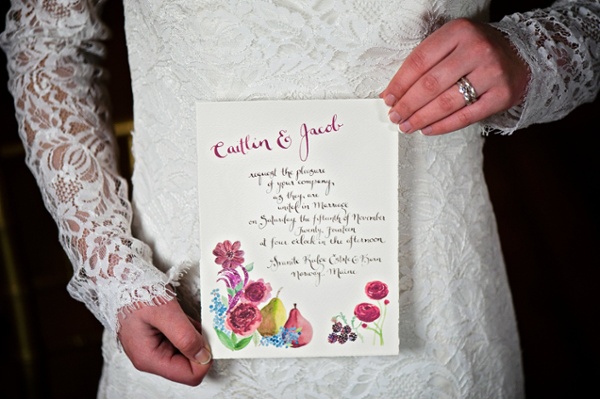 Caitlin & Jacob
request the pleasure
of your company,
as they, are
united in Marriage
on Saturday, the fifteenth of November
Twenty, Fourteen
at four o'clock in the afternoon
Granite Ridge Estate & Barn
Norway, Maine